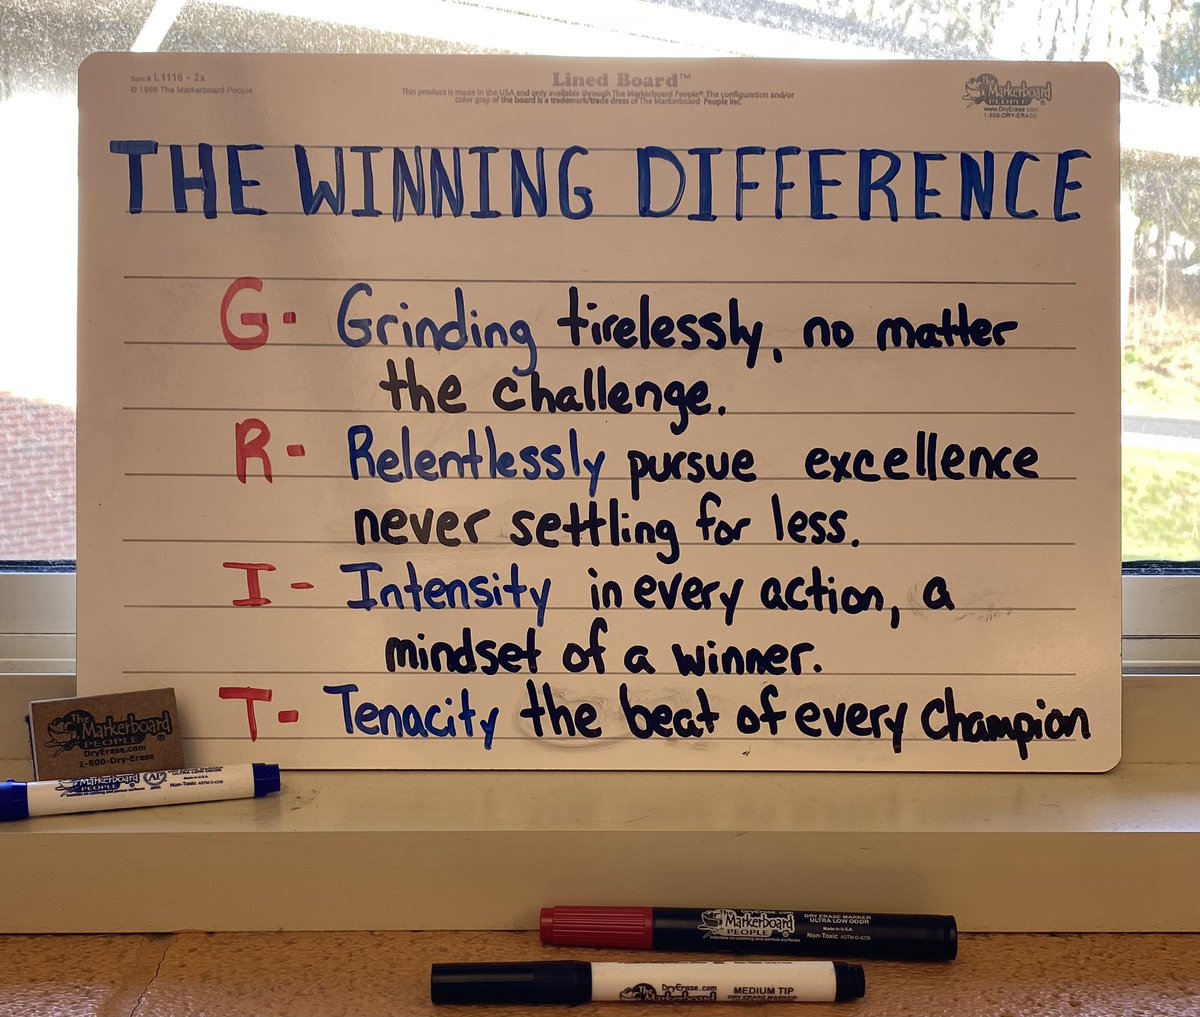 Item # L1116 - 2x
© 1998 The Markerboard People
Lined Board™
This product is made in the USA and only available through The Markerboard People®. The configuration and/or
color gray of the board is a trademark/trade dress of The Markerboard People Inc.
The Markerboard
PEOPLE
www.DryErase.com
1-800-DRY-ERASE
THE WINNING DIFFERENCE
G- Grinding tirelessly, no matter
the challenge.
R- Relentlessly pursue excellence
never settling for less.
I- Intensity in every action, a
mindset of a winner.
T- Tenacity the beat of every Champion
The Markerboard
PEOPLE
DryErase.com
1-800-Dry-Erase
Markerboard
PEOPLE
AP
ULTRA LOW ODOR
Made in U.S.A.
Non-Toxic ASTM D-4236
DryErase.com
The Markerboard
PEOPLE
DRY ERASE MARKER
ULTRA LOW ODOR
Made in U.S.A.
Non-Toxic ASTM D-4236
DryErase.com
The Markerboard
PEOPLE
MEDIUM TIP
DRY ERASE MARKER